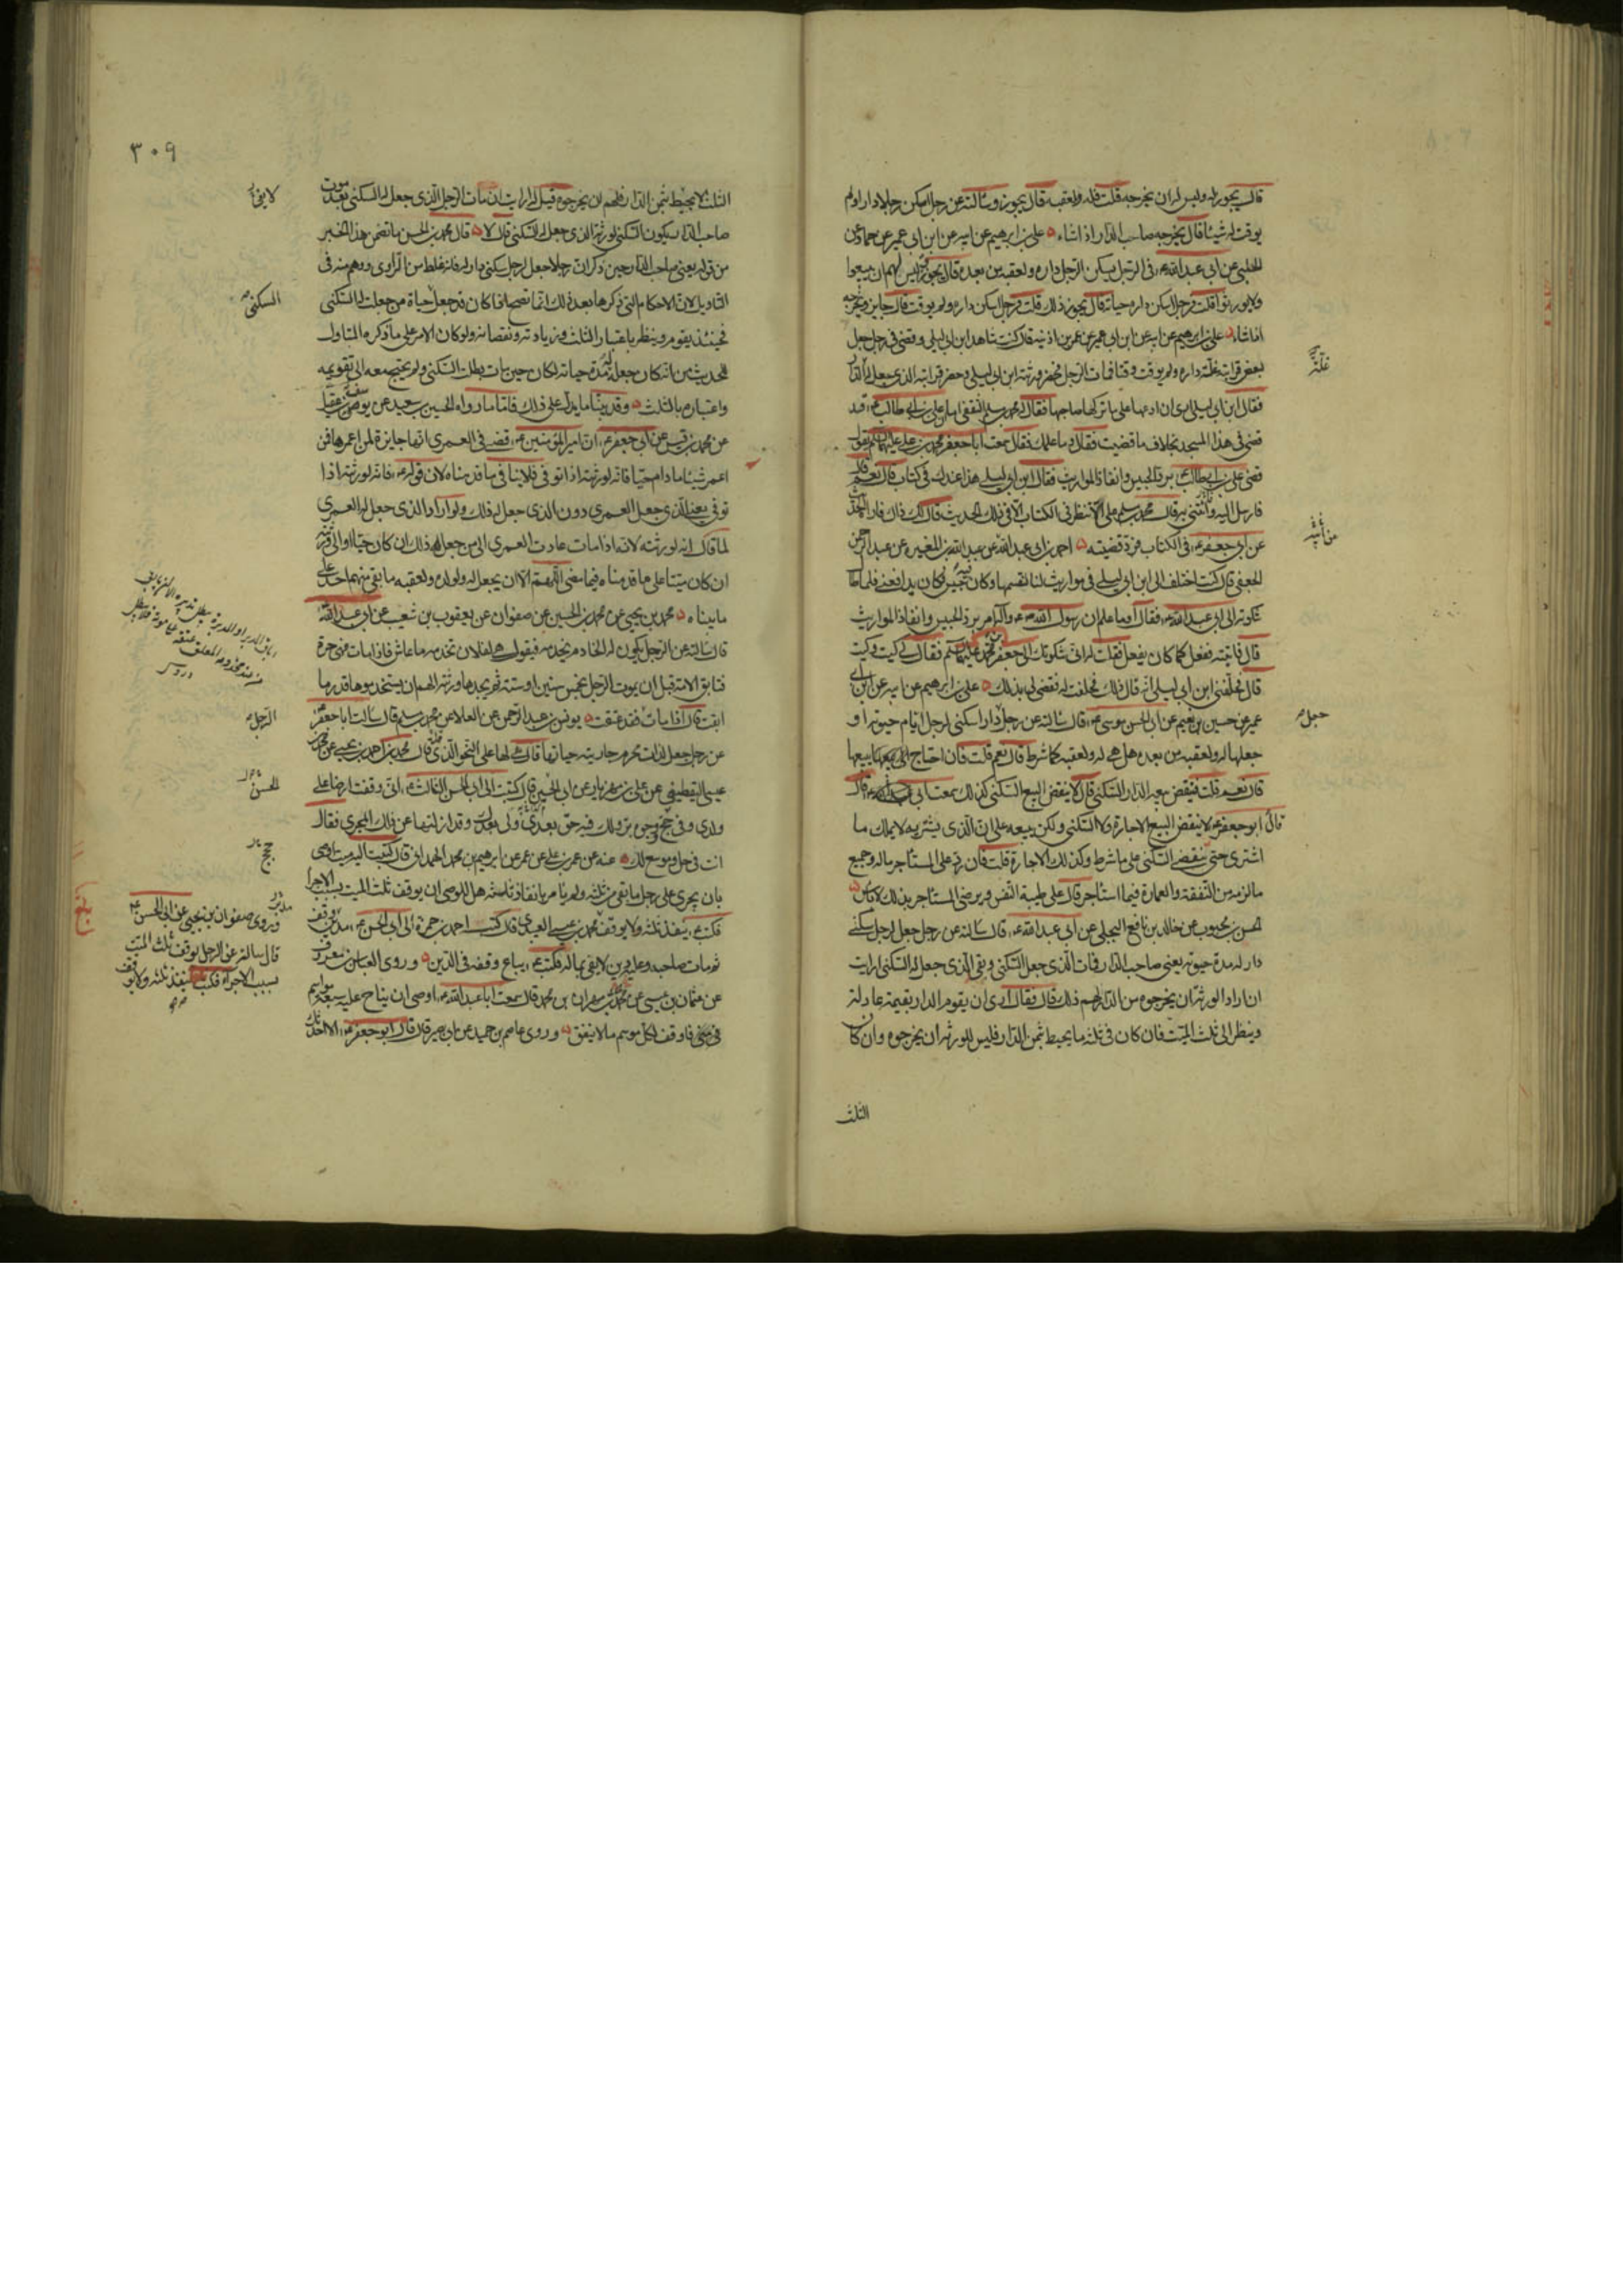 قال يجوز له وليس له ان يخرجه قلت فله ولعقبه قال يجوز وسالته عن رجل اسكن رجلا دارا ولم
يوقت له شيئا قال يخرجه صاحب الدار اذا شاء ٥ علي بن ابرهيم عن ابيه عن ابن ابي عمير عن حماد عن
الحلبي عن ابي عبد الله ع في الرجل يسكن الرجل داره ولعقبه من بعده قال يجوز وليس لهم ان يبيعوا
ولا يورثوا قلت فرجل اسكن داره حياته قال يجوز ذلك قلت فرجل اسكن داره ولم يوقت قال جايز ويخرجه
اذا شاء ٥ علي بن ابرهيم عن ابيه عن ابن ابي عمير عن عمر بن اذينه قال كنت شاهد ابن ابي ليلى وقضى في رجل جعل
لبعض قرابته غلة داره ولم يوقت وقتا فمات الرجل فحضر ورثته ابن ابي ليلى وحضر قرابته الذي جعل له الدار
فقال ابن ابي ليلى ارى ان ادعها على ما تركها صاحبها فقال له محمد بن مسلم الثقفي اما ان علي بن ابي طالب ع قد
قضى في هذا المسجد بخلاف ما قضيت فقال وما علمك فقال سمعت ابا جعفر محمد بن علي عليهما السلم يقول
قضى علي بن ابي طالب ع برد الحبيس وانفاذ المواريث فقال ابن ابي ليلى هذا عندك في كتاب قال نعم قال
فارسل اليه وائتني به قال محمد بن مسلم على الا تنظر في الكتاب الا في ذلك الحديث قال لك ذاك فاراه الحديث
عن ابي جعفر ع في الكتاب فرد قضيته ٥ احمد بن ابي عبد الله عن عبد الله بن المغيره عن عبد الرحمن
الجعفي قال كنت اختلف الى ابن ابي ليلى في مواريث لنا نقسمها وكان فيه حبيس فكان يدافعني فلما طال
شكوته الى ابي عبد الله ع فقال او ما علم ان رسول الله ص امر برد الحبيس وانفاذ المواريث
قال فاتيته ففعل كما كان يفعل فقلت له اني شكوتك الى جعفر بن محمد عليهما السلم فقال لي كيت وكيت
قال فحلفني ابن ابي ليلى انه قال ذلك فحلفت له فقضى لي بذلك ٥ علي بن ابرهيم عن ابيه عن ابن ابي
عمير عن حسين بن نعيم عن ابي الحسن موسى ع قال سالته عن رجل دار اسكنى لرجل ايام حيوته او
جعلها له ولعقبه من بعده هل هي له ولعقبه كما شرط قال نعم قلت فان احتاج الى بيعها يبيعها
قال نعم قلت فينقض بيعه الدار السكنى قال لا ينقض البيع السكنى كذلك سمعت ابي ع قال
قال ابو جعفر ع لا ينقض البيع الاجارة ولا السكنى ولكن يبيعه على ان الذي يشتريه لا يملك ما
اشترى حتى ينقضي السكنى على ما شرط وكذلك الاجارة قلت فان رد على المستاجر ماله وجميع
ما لزمه من النفقة والعمارة فيما استاجر قال على طيبة النفس ويرضى المستاجر بذلك لا باس ٥
الحسن بن محبوب عن خالد بن نافع البجلي عن ابي عبد الله ع قال سالته عن رجل جعل لرجل سكنى
دار له مدة حيوته يعني صاحب الدار فمات الذي جعل السكنى وبقي الذي جعل له السكنى ارايت
ان اراد الورثة ان يخرجوه من الدار لهم ذلك قال فقال ارى ان يقوم الدار بقيمة عادلة
وينظر الى ثلث الميت فان كان في ثلثه ما يحيط بثمن الدار فليس للورثة ان يخرجوه وان كان
الثلث
غلة
من يأتيه
جعل
٣٠٩
الثلث لا يحيط بثمن الدار فلهم ان يخرجوه قيل له ارايت ان مات الرجل الذي جعل له السكنى بعد موت
صاحب الدار يكون السكنى لورثة الذي جعل له السكنى قال لا ٥ قال محمد بن الحسن ما تضمن هذا الخبر
من قوله يعني صاحب الدار حين ذكر ان رجلا جعل لرجل سكنى دار له فانه غلط من الراوي ووهم منه في
التاويل لان الاحكام التي ذكرها بعد ذلك انما تصح اذا كان قد جعل حياة من جعلت له السكنى
فحينئذ يقوم وينظر باعتبار الثلث وزيادته ونقصانه ولو كان الامر على ما ذكره المتاول
للحديث من انه كان جعله له مدة حياته لكان حين مات بطلت السكنى ولم يحتج معه الى تقويمه
واعتباره بالثلث ٥ وقد بينا ما يدل على ذلك فاما ما رواه الحسين بن سعيد عن يوسف بن عقيل
عن محمد بن قيس عن ابي جعفر ع ان امير المؤمنين ع قضى في العمرى انها جايزة لمن اعمرها فمن
اعمر شيئا ما دام حيا فانه لورثته اذا توفي فلا ينافي ما قدمناه لان قوله ع فانه لورثته اذا
توفي يعني الذي جعل العمرى دون الذي جعل له ذلك ولو اراد الذي جعل له العمرى
لما قال انه لورثته لانه اذا مات عادت العمرى الى من جعل له ذلك ان كان حيا او الى ورثته
ان كان ميتا على ما قدمناه فيما مضى اللهم الا ان يجعل له ولولده ولعقبه ما بقي منهم احد على
ما بيناه ٥ محمد بن يحيى عن محمد بن الحسين عن صفوان عن يعقوب بن شعيب عن ابي عبد الله ع
قال سالته عن الرجل يكون له الخادم يخدمه فيقول هي لفلان تخدمه ما عاش فاذا مات فهي حرة
فتابق الامة قبل ان يموت الرجل بخمس سنين او ستة ثم يجدها ورثته الهم ان يستخدموها قدر ما
ابقت قال اذا مات فقد عتقت ٥ يونس بن عبد الرحمن عن العلا عن محمد بن مسلم قال سالت ابا جعفر ع
عن رجل جعل لذات محرم جاريته حياتها قال هي لها على النحو الذي قال محمد بن احمد بن يحيى عن محمد بن
عيسى اليقطيني عن علي بن مهزيار عن ابي الحسين قال كتبت الى ابي الحسن الثالث ع اني وقفت ارضا على
ولدي وفي حج ووجوه بر ولك فيه حق بعدي ولي بعدك وقد ازلتها عن ذلك المجرى فقال
انت في حل وموسع لك ٥ عنه عن عمر بن علي بن عمر عن ابرهيم بن محمد الهمداني قال كتبت اليه ميت اوصى
بان يجرى على رجل ما بقي من ثلثه ولم يامر بانفاذ ثلثه هل للوصي ان يوقف ثلث الميت بسبب الاجرا
فكتب ع ينفذ ثلثه ولا يوقف محمد بن عيسى العبيدي قال كتب احمد بن حمزة الى ابي الحسن ع مدين وقف
ثم مات صاحبه وعليه دين لا يفي بماله فكتب ع يباع وقفه في الدين ٥ وروى العباس بن معروف
عن عثمان بن عيسى عن مهران بن محمد قال سمعت ابا عبد الله ع اوصى ان يناح عليه سبعة مواسم
فاوقف لكل موسم مالا ينفق ٥ وروى عاصم بن حميد عن ابي بصير قال قال ابو جعفر ع الا احدثك
لا يفي
السكنى
الرجل
الحسن
حجج
وروى صفوان بن يحيى عن ابي الحسن ع
قال سالته عن الرجل يوقف ثلث الميت
بسبب الاجراء فكتب ينفذ ثلثه ولا يوقف
بلغ